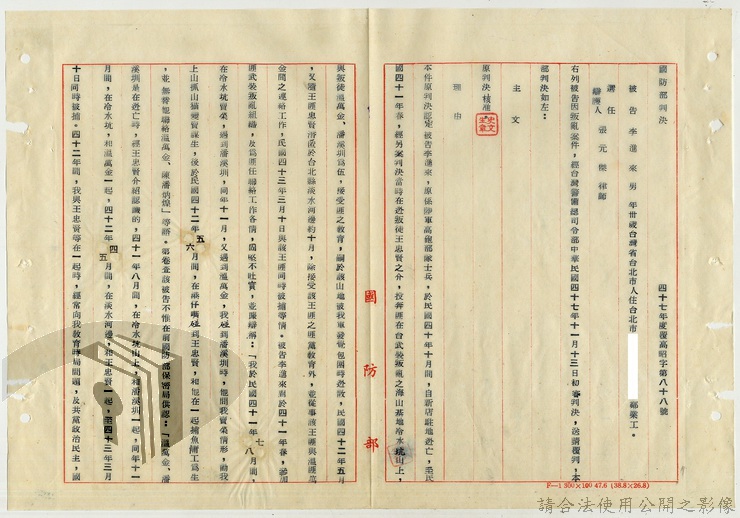 國防部判決　四十七年度覆高昭字第八十八號
被告李進來男年卅歲台灣省台北市人住台北市　　　　　鄉業工。
選任辯護人張元傑律師
右列被告因叛亂案件，經台灣警備總司令部中華民國四十七年十一月十三日初審判決，送請覆判，本
部判決如左：
主文
原判決核准。
理由
本件原判決認定被告李進來，原係陸軍高雄部隊士兵，於民國四十年十月間，自新店駐地逃亡，至民
國四十一年春，經另案判決當時在逃叛徒王忠賢之介，投奔匪在台武裝叛亂之海山基地冷水坑山上，
國防部
與叛徒溫萬金、潘溪圳為伍，接受匪之教育，嗣於該山地被我軍發覺包圍時逃散，民國四十二年五月
，又隨王匪忠賢潛匿於台北縣淡水河邊約十月，除接受該王匪之匪黨教育外，並從事該王匪與溫匪萬
金間之連絡工作，民國四十三年三月十日與該王匪同時被捕等情。被告李進來對於四十一年春，參加
匪武裝叛亂組織，及為匪任聯絡工作各情，固堅不吐實，並飾辭辯稱：「我於民國四十一年七八月間，
在冷水坑賣菜，遇到潘溪圳，同年十一月，又遇到溫萬金，我碰到潘溪圳時，他問我賣菜情形，勸我
上山抓山猫變賣謀生，後於民國四十二年五六月間，在溪仔嘴碰到王忠賢，和他在一起捕魚做工為生
，並無替他聯絡溫萬金、陳潘炳煌」等語。第卷查該被告不惟在前國防部保密局供認：「溫萬金、潘
溪圳是在逃亡時，經王忠賢介紹認識的，四十一年八月間，在冷水坑山上，和潘溪圳一起，同年十一
月間，在冷水坑，和溫萬金一起，四十二年四五月間，在淡水河邊，和王忠賢一起，至四十三年三月
十日同時被捕。四十二年間，我與王忠賢等在一起時，經常向我教育時局問題，及共黨政治民主，國
F—1 500×100 47.6 (38.8×26.8)
請合法使用公開之影像